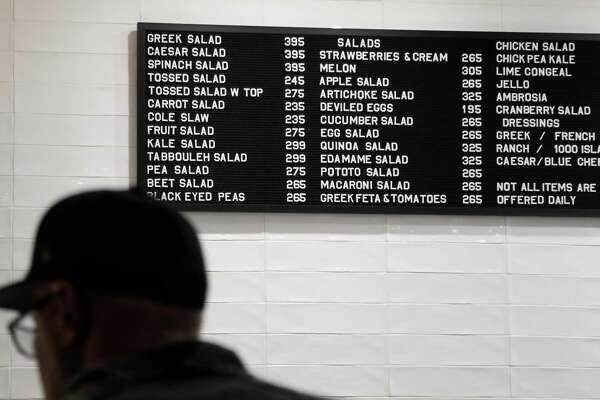 GREEK SALAD 395
CAESAR SALAD 395
SPINACH SALAD 395
TOSSED SALAD 245
TOSSED SALAD W TOP 275
CARROT SALAD 235
COLE SLAW 235
FRUIT SALAD 275
KALE SALAD 299
TABBOULEH SALAD 299
PEA SALAD 275
BEET SALAD 265
BLACK EYED PEAS 265
SALADS
STRAWBERRIES & CREAM 265
MELON 305
APPLE SALAD 265
ARTICHOKE SALAD 325
DEVILED EGGS 195
CUCUMBER SALAD 265
EGG SALAD 265
QUINOA SALAD 325
EDAMAME SALAD 325
POTOTO SALAD 265
MACARONI SALAD 265
GREEK FETA & TOMATOES 265
CHICKEN SALAD
CHICK PEA KALE
LIME CONGEAL
JELLO
AMBROSIA
CRANBERRY SALAD
DRESSINGS
GREEK / FRENCH
RANCH / 1000 ISLA
CAESAR/BLUE CHEE
NOT ALL ITEMS ARE
OFFERED DAILY